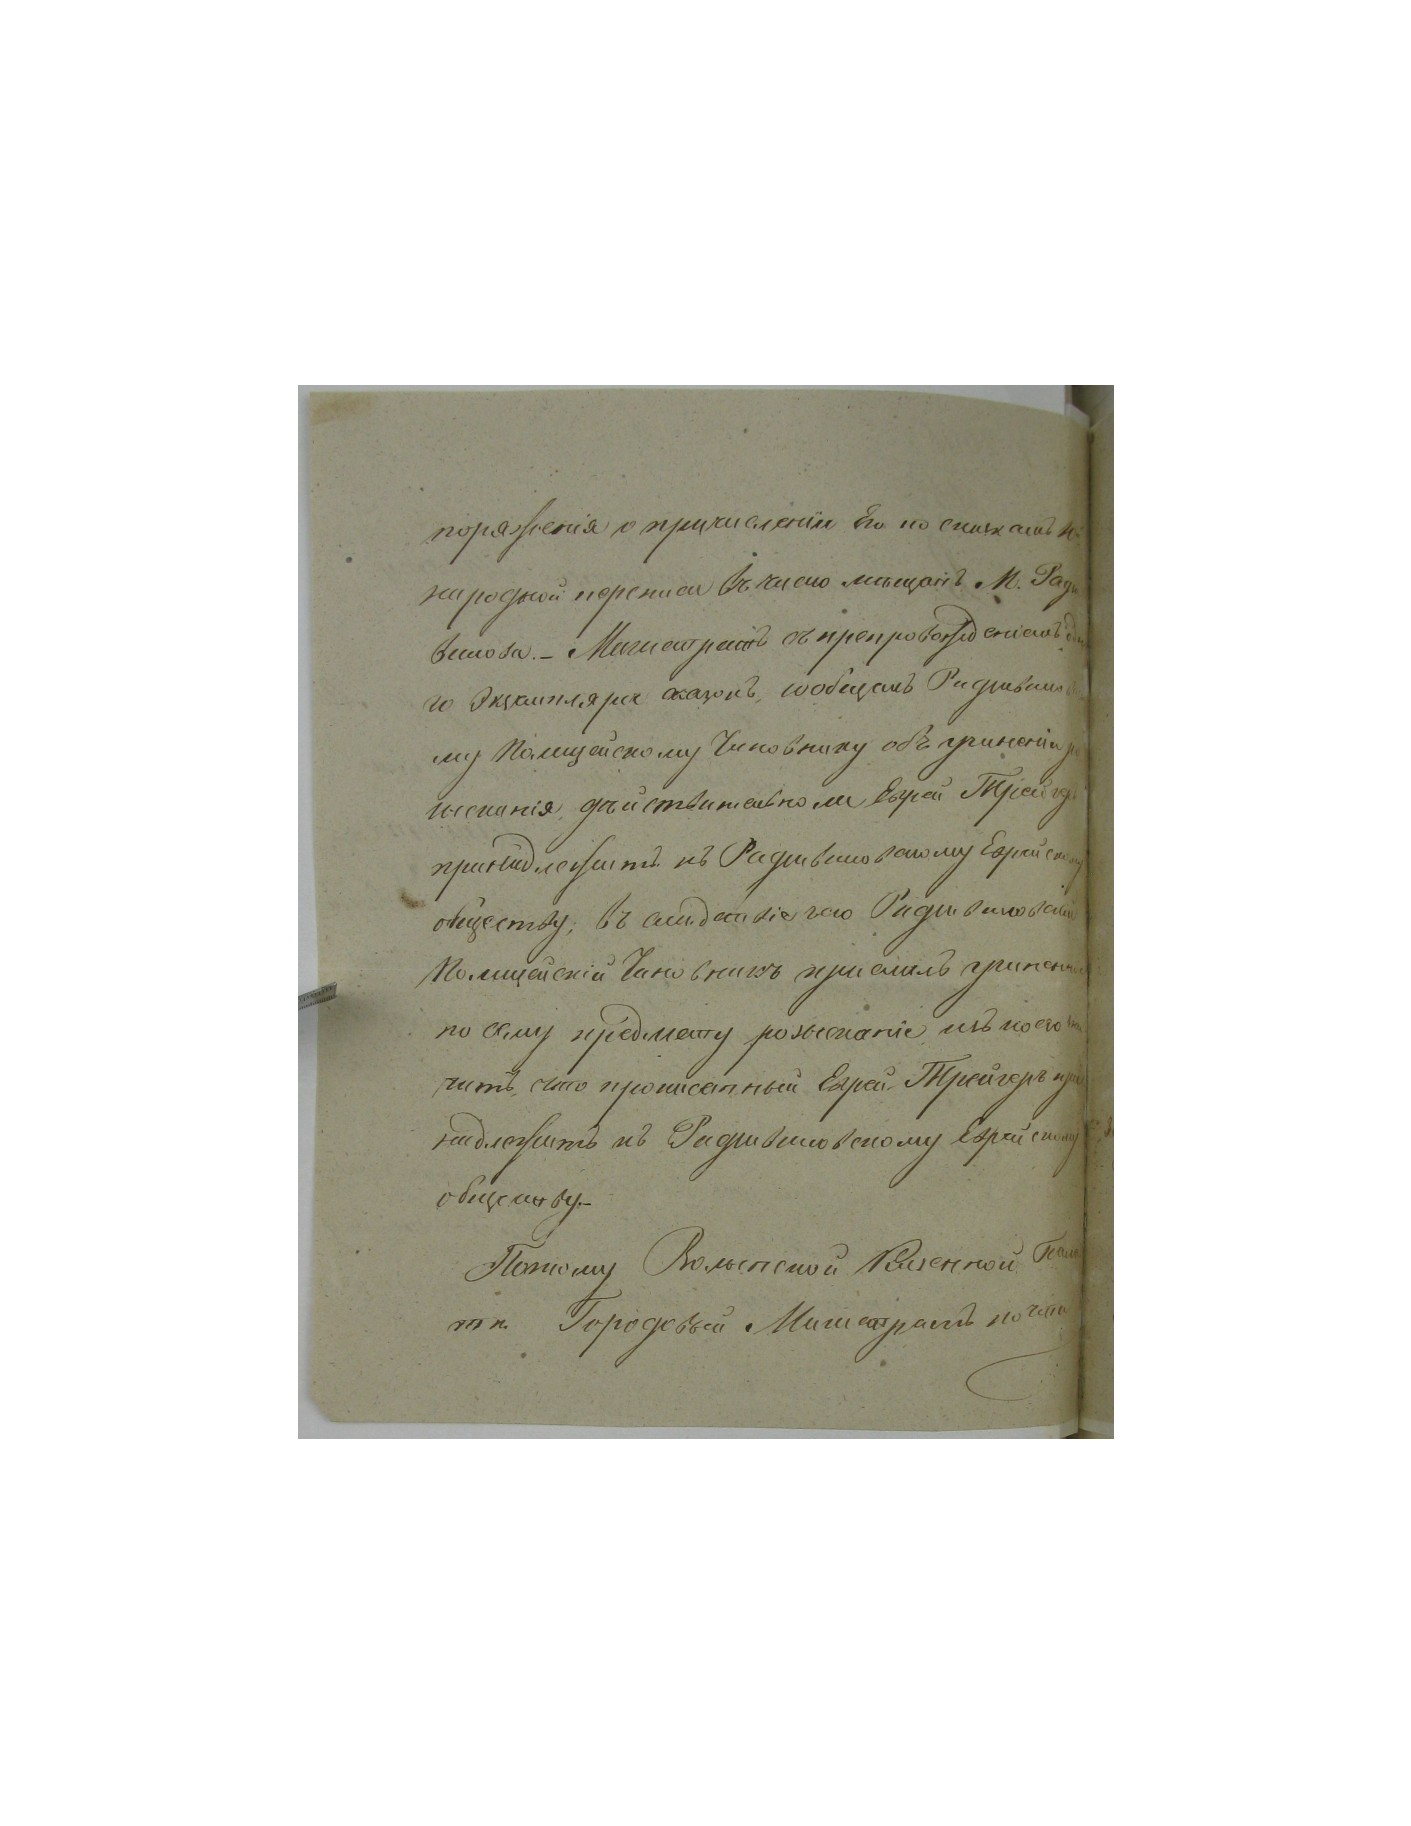 поряженія о причисленіи Его по сказкамъ
народной переписи въ число мѣщанъ М. Ради
вилова. – Магистратъ съ препровожденіемъ
го Экземпляра сказокъ, сообщалъ Радзивиловско
му Полицейскому Чиновнику объ учиненіи ро
зысканія, дѣйствительно ли Еврей Трейгеръ
принадлежитъ къ Радзивиловскому Еврейскому
обществу, въ слѣдствіе чего Радзивиловскій
Полицейскій Чиновникъ прислалъ учиненное
по сему предмету розысканіе, изъ коего
читъ, что прописанный Еврей Трейгеръ при
надлежитъ къ Радзивиловскому Еврейскому
обществу. –
Потому Волынской Казенной Пала
тѣ Городовый Магистратъ почти